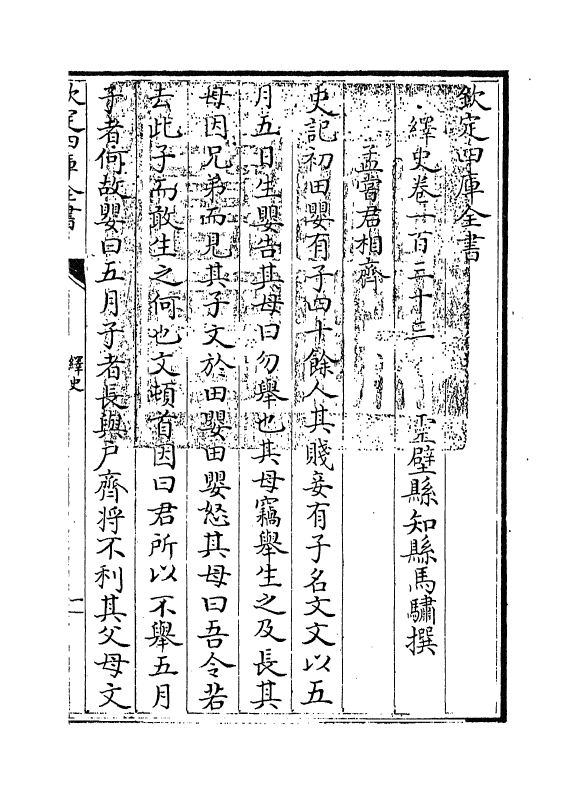 欽定四庫全書
繹史卷一百二十三
靈璧縣知縣馬驌撰
孟嘗君相齊
史記初田嬰有子四十餘人其賤妾有子名文文以五
月五日生嬰告其母曰勿舉也其母竊舉生之及長其
母因兄弟而見其子文於田嬰田嬰怒其母曰吾令若
去此子而敢生之何也文頓首因曰君所以不舉五月
子者何故嬰曰五月子者長與戶齊將不利其父母文
欽定四庫全書
繹史
一